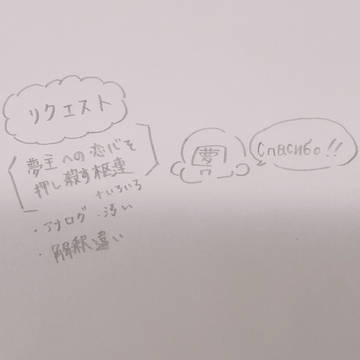 リクエスト
夢主への恋心を
押し殺す枢連
+いろいろ
・アナログ ・汚い
・解釈違い
夢
Спасибо!!